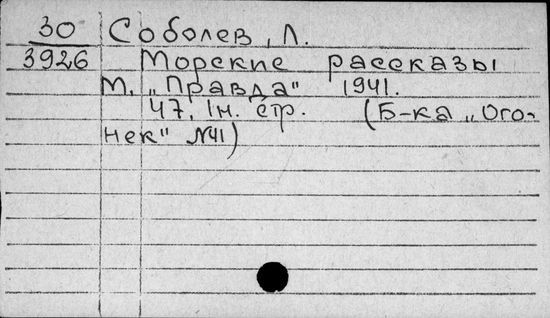 30 Соболев, Л.
3926 Морские рассказы
М. „Правда" 1941.
47, 1н. стр. (Б-ка „Ого-
нек" №41)